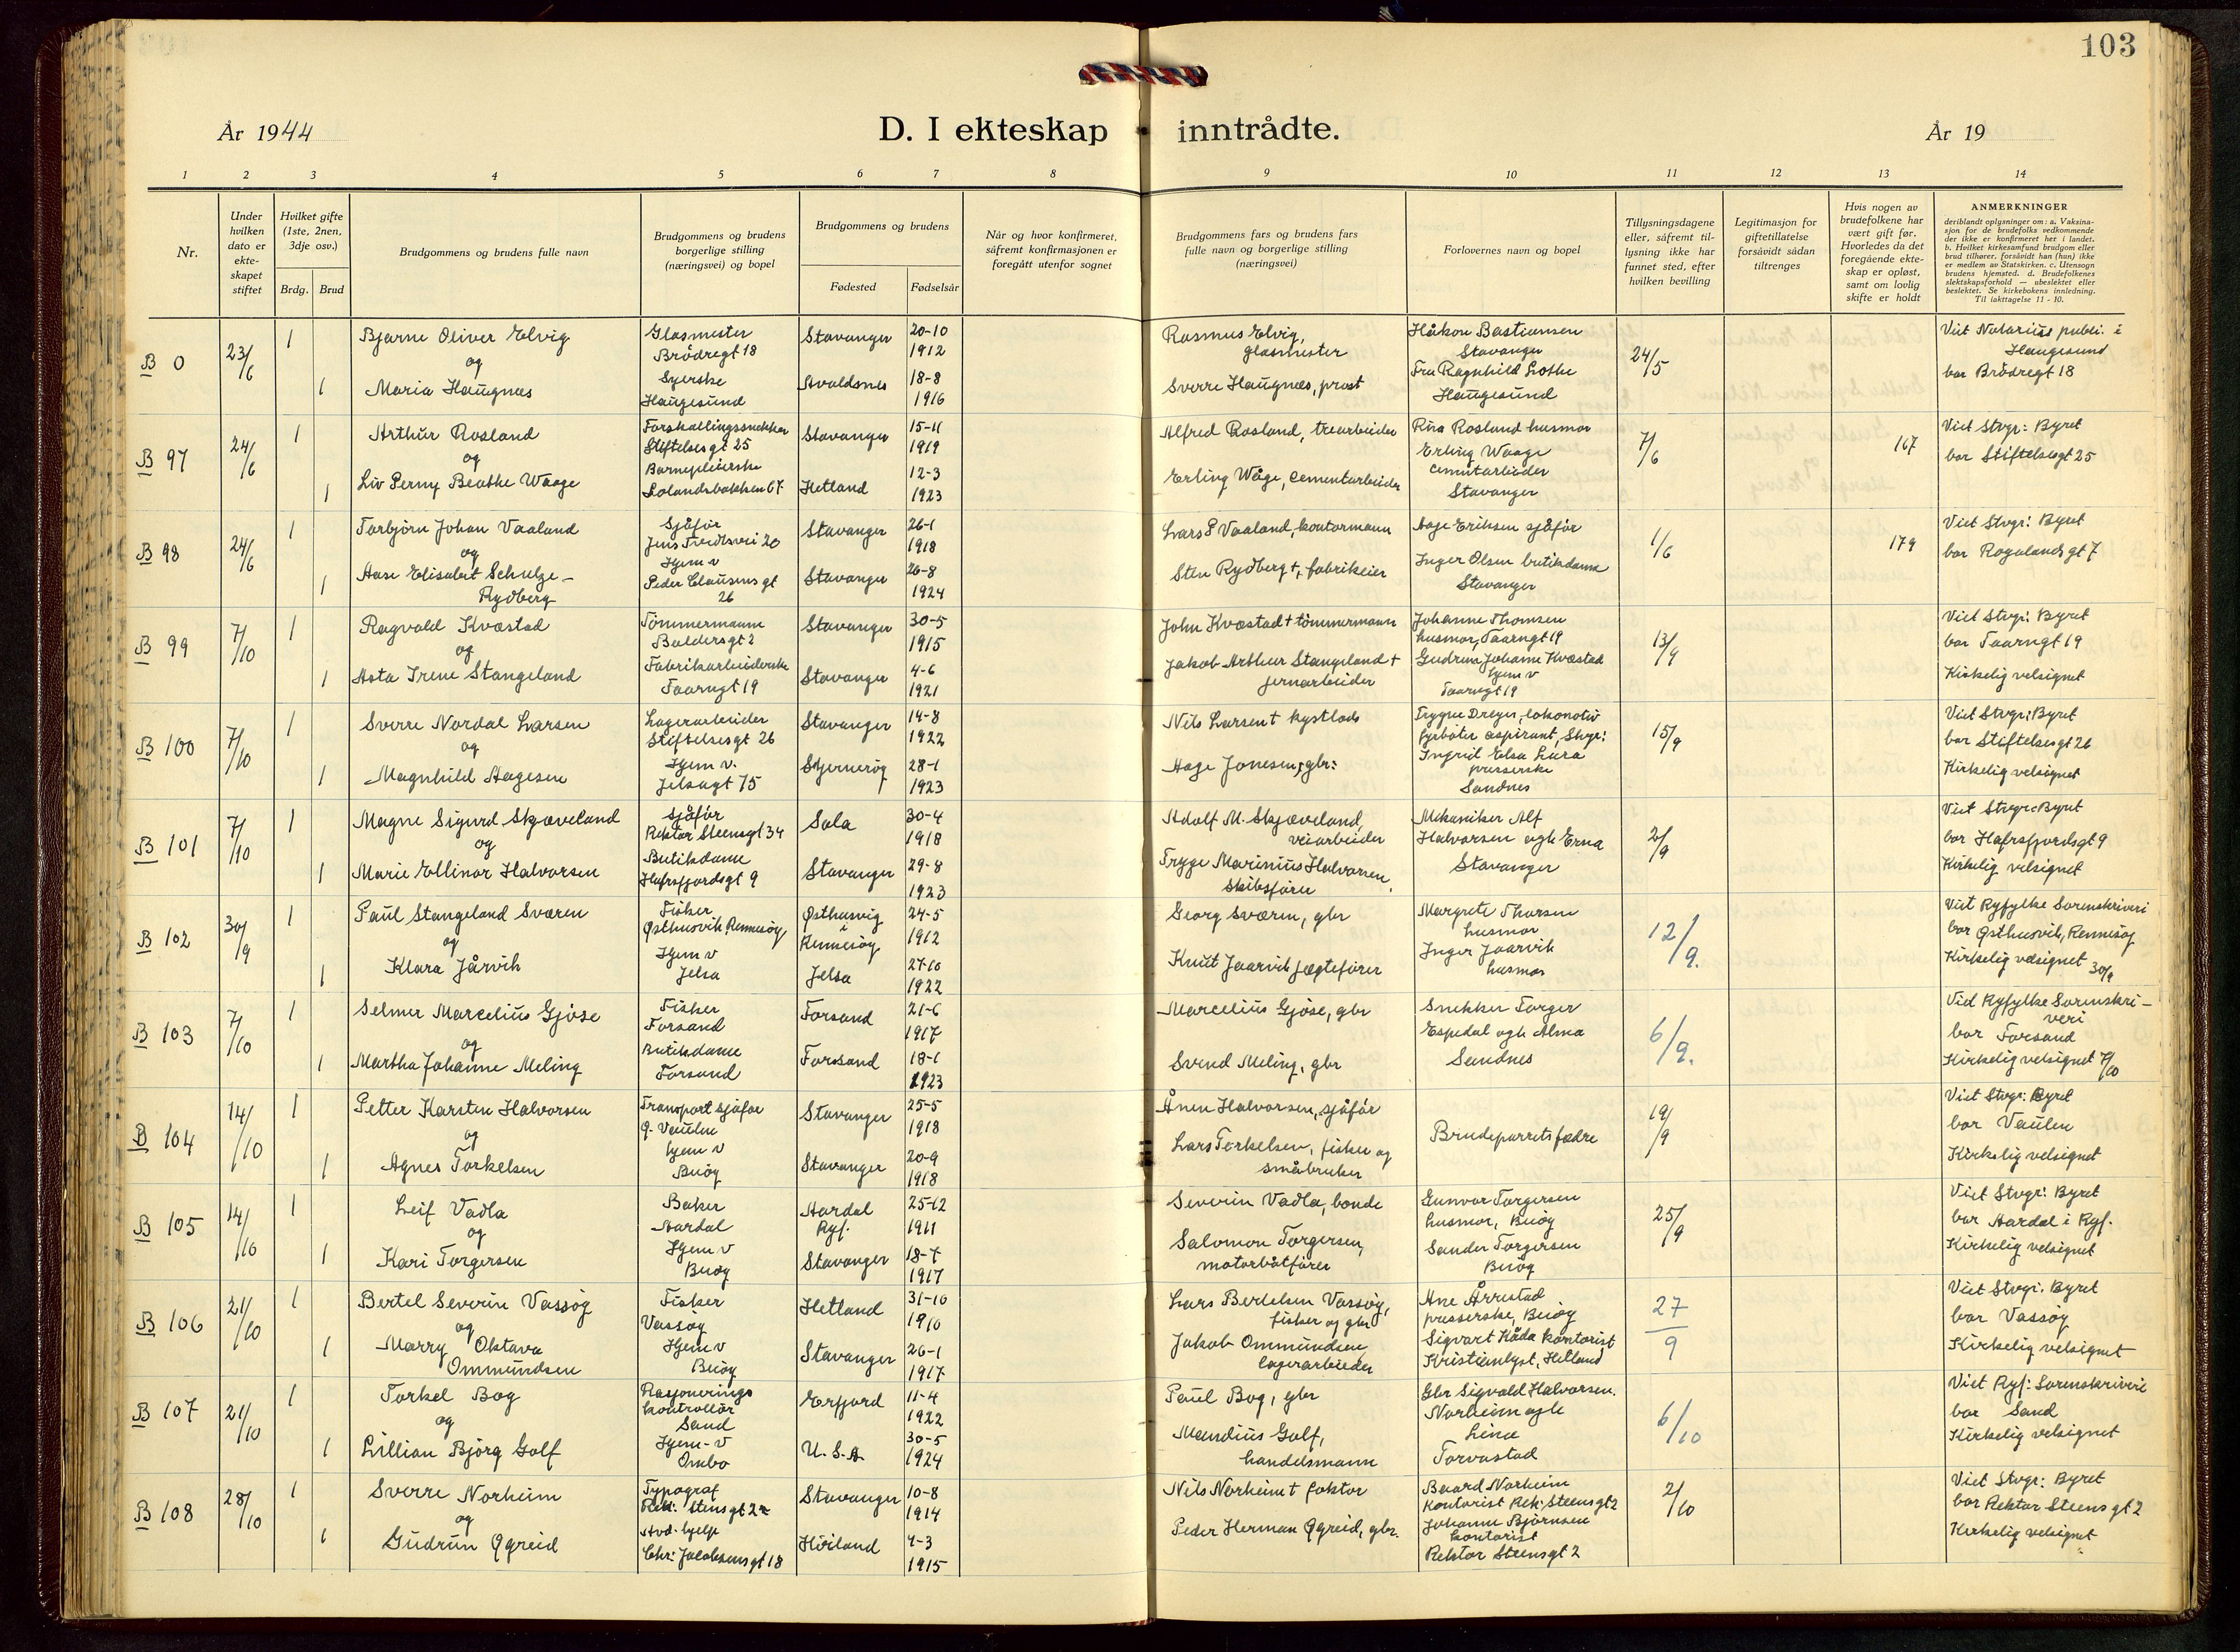 103
År 1944
D. I ekteskap inntrådte.
År 19
1 2 3 4 5 6 7 8 9 10 11 12 13 14
Nr.
Under hvilken dato er ekte-skapet stiftet
Hvilket gifte (1ste, 2nen, 3dje osv.)
Brdg. Brud
Brudgommens og brudens fulle navn
Brudgommens og brudens borgerlige stilling (næringsvei) og bopel
Brudgommens og brudens
Fødested Fødselsår
Når og hvor konfirmeret, såfremt konfirmasjonen er foregått utenfor sognet
Brudgommens fars og brudens fars fulle navn og borgerlige stilling (næringsvei)
Forlovernes navn og bopel
Tillysningsdagene eller, såfremt til-lysning ikke har funnet sted, efter hvilken bevilling
Legitimasjon for giftetillatelse forsåvidt sådan tiltrenges
Hvis nogen av brudefolkene har vært gift før. Hvorledes da det foregående ekte-skap er opløst, samt om lovlig skifte er holdt
ANMERKNINGER
deriblandt oplysninger om: a. Vaksina-sjon for de brudefolks vedkommende der ikke er konfirmeret her i landet. b. Hvilket kirkesamfund brudgom eller brud tilhører, forsåvidt han (hun) ikke er medlem av Statskirken. c. Utensogn brudens hjemsted. d. Brudefolkenes slektskapsforhold — ubeslektet eller beslektet. Se kirkebokens innledning. Til iakttagelse 11 - 10.
B 0 23/6 1 Bjarne Oliver Elvig Glasmester Brödregt 18 Stavanger 20-10 1912 Rasmus Elvig, glasmester Håkon Bastiansen Stavanger 24/5 Viet Notarius publ. i Haugesund bor Brödregt 18
og
1 Maria Haugnæs Syerske Haugesund Avaldsnes 18-8 1916 Sverre Haugnæs, prost Fru Ragnhild Lothe Haugesund
B 97 24/6 1 Arthur Rosland Forskallingssnekker Stiftelsesgt 25 Stavanger 15-11 1919 Alfred Rosland, trearbeider Rina Rosland husmor 7/6 167 Viet Stvgr: Byret bor Stiftelsesgt 25
og
1 Liv Perny Beathe Waage Barnepleierske Solandsbakken 67 Hetland 12-3 1923 Erling Wåge, cementarbeider Erling Waage cementarbeider Stavanger
B 98 24/6 1 Torbjörn Johan Vaaland Sjåför Jens Tvedtsvei 20 Stavanger 26-1 1918 Lars P Vaaland, kontormann Aage Eriksen sjåför 1/6 179 Viet Stvgr: Byret bor Rogalandsgt 7
og
1 Aase Elisabet Schulze-Rydberg Hjem v Peder Clausensgt 26 Stavanger 26-8 1924 Sten Rydberg †, fabrikeier Inger Olsen butikdame Stavanger
B 99 7/10 1 Ragvald Kvæstad Tömmermann Baldersgt 2 Stavanger 30-5 1915 John Kvæstad † tömmermann Johanne Thomsen husmor, Taarngt 19 13/9 Viet Stvgr: Byret bor Taarngt 19 Kirkelig velsignet
og
1 Asta Irene Stangeland Fabrikarbeiderske Taarngt 19 Stavanger 4-6 1921 Jakob Arthur Stangeland † jernarbeider Gudrun Johanne Kvæstad hjem v Taarngt 19
B 100 7/10 1 Sverre Nordal Larsen Lagerarbeider Stiftelsesgt 26 Stavanger 14-8 1922 Nils Larsen † kystlods Trygve Dreyer, lokomotiv fyrböter aspirant, Stvgr: 15/9 Viet Stvgr: Byret bor Stiftelsesgt 26 Kirkelig velsignet
og
1 Magnhild Aagesen Hjem v. Jelsagt 75 Skjernerøy 28-1 1923 Aage Jonesen, gbr: Ingrid Elsa Lura presserske Sandnes
B 101 7/10 1 Magne Sigurd Skjæveland Sjåför Rektor Steensgt 34 Sola 30-4 1918 Adolf M. Skjæveland, veiarbeider Mekaniker Alf Halvorsen ogh Erna Stavanger 2/9 Viet Stvgr: Byret bor Hafrsfjordsgt 9 Kirkelig velsignet
og
1 Marie Ellinor Halvorsen Butikdame Hafrsfjordsgt 9 Stavanger 29-8 1923 Trygve Marinius Halvorsen, Skibsförer
B 102 30/9 1 Paul Stangeland Sværen Fisker Østhusvik Rennesöy Østhusvig i Rennesöy 24-5 1912 Georg Sværen, gbr Margrete Thorsen husmor 12/9. Viet Ryfylke Sorenskriveri bor Østhusvik, Rennesöy Kirkelig velsignet 30/9
og
1 Klara Jårvik Hjem v Jelsa Jelsa 27-10 1922 Knut Jaarvik jægtefører Inger Jaarvik husmor
B 103 7/10 1 Selmer Marcelius Gjöse Fisker Forsand Forsand 21-6 1917 Marcelius Gjöse, gbr Snekker Torger Espedal ogh Alma Sandnes 6/9. Vid Ryfylke Sorenskri-veri bor Forsand Kirkelig velsignet 7/10
og
1 Martha Johanne Meling Butikdame Forsand Forsand 18-1 1923 Svend Meling, gbr
B 104 14/10 1 Petter Karsten Halvorsen Transport sjåför G. Vaulen Stavanger 25-5 1918 Ånen Halvorsen, sjåför Brudeparrets fædre 19/9 Viet Stvgr: Byret bor Vaulen Kirkelig velsignet
og
1 Agnes Torkelsen hjem v Buöy Stavanger 20-9 1918 Lars Torkelsen, fisker og småbruker
B 105 14/10 1 Leif Vadla Baker Aardal Aardal Ryf. 25-12 1911 Severin Vadla, bonde Gunvor Torgersen husmor, Buöy 25/9 Viet Stvgr: Byret bor Aardal i Ryf. Kirkelig velsignet
og
1 Kari Torgersen Hjem v Buöy Stavanger 18-7 1917 Salomon Torgersen, motorbåtfører Sander Torgersen Buöy
B 106 21/10 1 Bertel Severin Vassöy Fisker Vassöy Hetland 31-10 1910 Lars Bertelsen Vassöy, fisker og gbr Ane Årrestad presserske, Buöy 27/9 Viet Stvgr. Byret bor Vassöy Kirkelig velsignet
og
1 Marry Oktava Ommundsen Hjem v Buöy Stavanger 26-1 1917 Jakob Ommundsen, lagerarbeider Sigvart Kåda kontorist Kristianlyst, Hetland
B 107 21/10 1 Torkel Bog Rasjonerings kontrollör Sand Erfjord 11-4 1922 Paul Bog, gbr Gbr Sigvald Halvorsen Norheim ogh Lina Torvastad 6/10 Viet Ryf: Sorenskriveri bor Sand Kirkelig velsignet
og
1 Lillian Björg Golf Hjem-v Ombo U.S.A. 30-5 1924 Mandius Golf, handelsmann
B 108 28/10 1 Sverre Norheim Typograf Rek: Stensgt 2 Stavanger 10-8 1914 Nils Norheim † faktor Baard Norheim kontorist Rek: Steensgt 2 2/10 Viet Stvgr: Byret bor Rektor Steensgt 2 Kirkelig velsignet
og
1 Gudrun Ogreid Avd. hjelp Chr: Jacobsensgt 18 Höiland 4-3 1915 Peder Herman Ogreid, gbr. Johanne Björnsen kontorist Rektor Steensgt 2